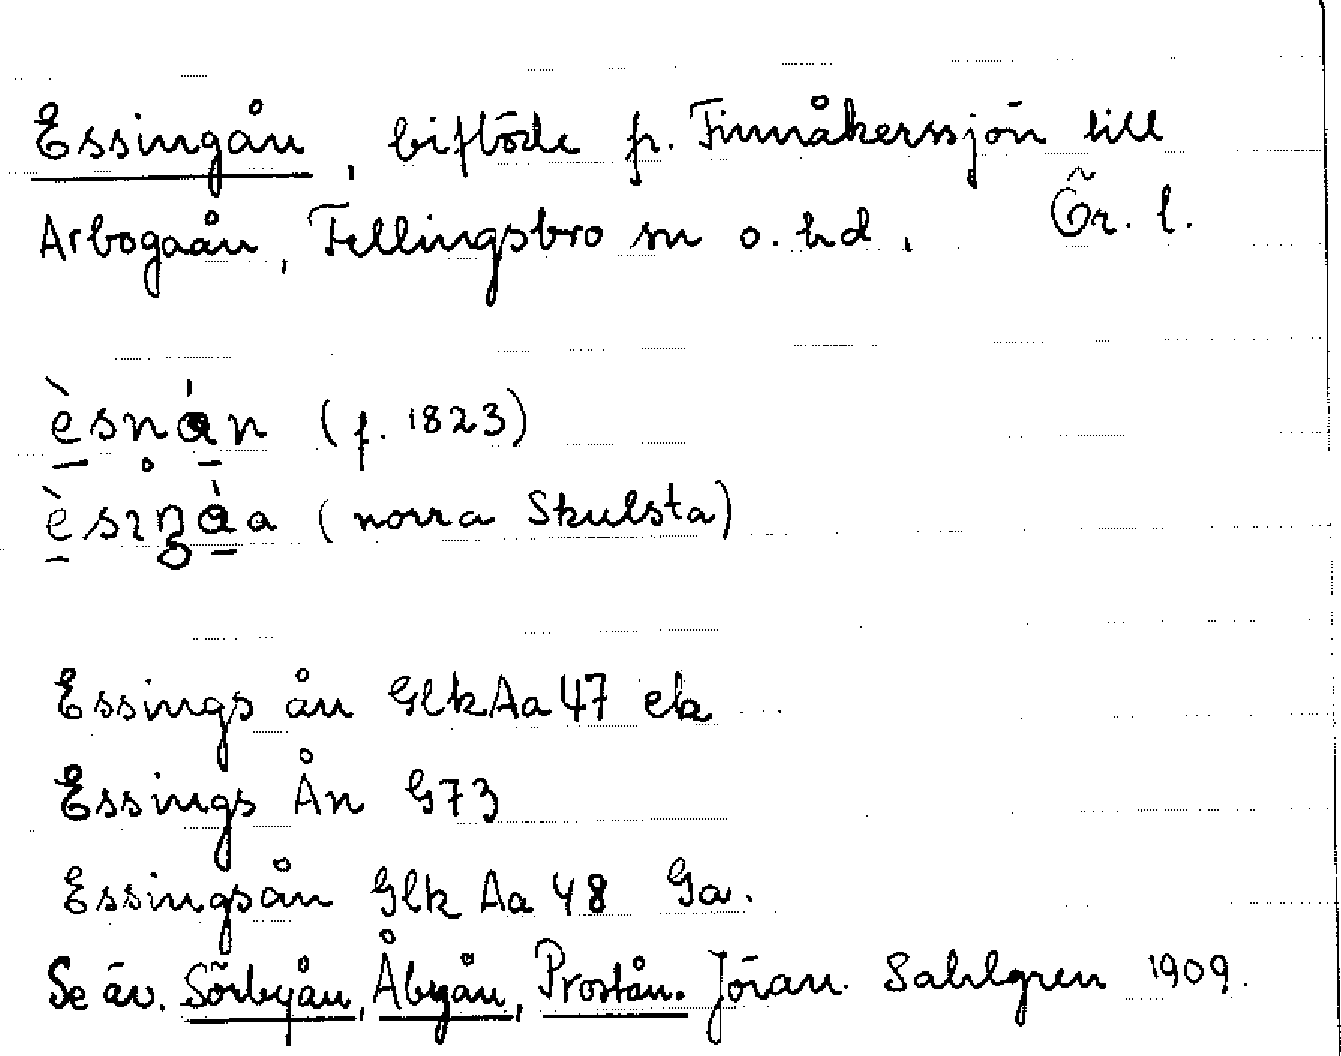 Essingån, biflöde fr. Finnåkerssjön till
Arbogaån, Fellingsbro sn o. hd. Ör. l.
(f. 1823)
(norra Skulsta)
Essings ån GlkAa 47 ek
Essings Ån G73
Essingsån Glk Aa 48 Ga.
Se äv. Sörbyån, Åbyån, Prostån. Jöran Sahlgren 1909.